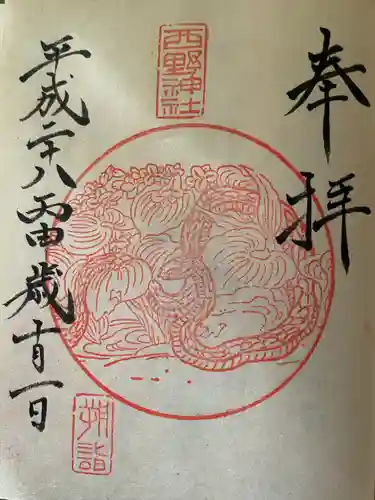 奉拝
西野神社
平成二十八丙申歳十月一日
朔詣